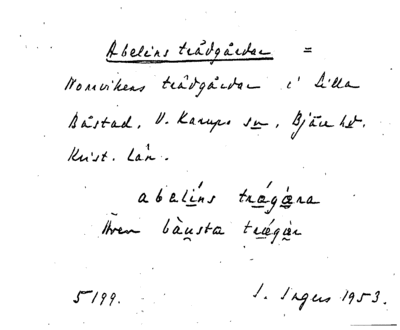 Abelins trädgårdar =
Norrvikens trädgårdar i Lilla
Båstad, V. Karups sn, Bjäre hd.
Krist. län.
abelíns trǽgǽra
Även bàusta trǽgær
5199. I. Ingers 1953.